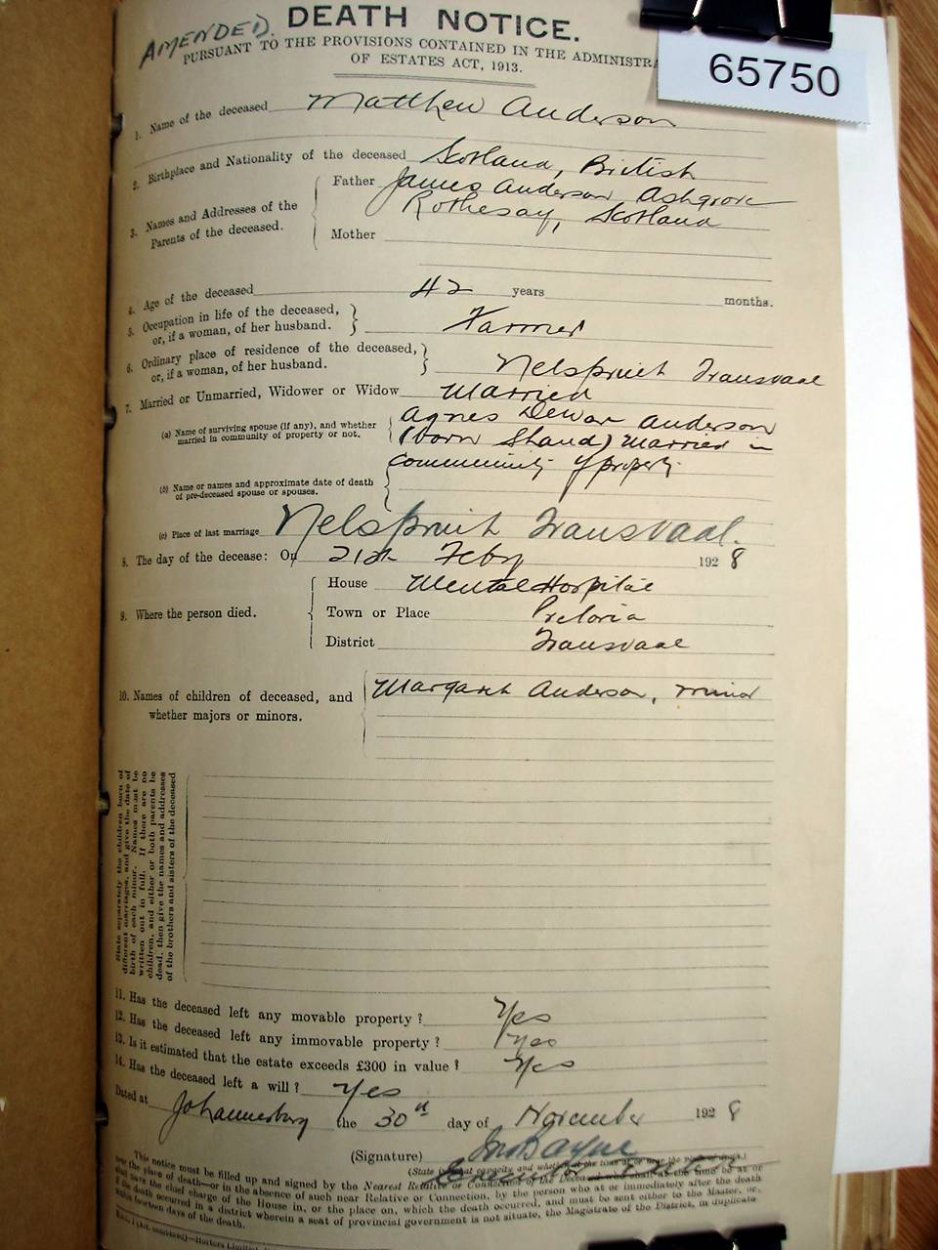 AMENDED. DEATH NOTICE.
65750
PURSUANT TO THE PROVISIONS CONTAINED IN THE ADMINISTRA
OF ESTATES ACT, 1913.
1. Name of the deceased Matthew Anderson
2. Birthplace and Nationality of the deceased Scotland, British
3. Names and Addresses of the Parents of the deceased.
Father James Anderson Ashgrove
Rothesay, Scotland
Mother
4. Age of the deceased 42 years months.
5. Occupation in life of the deceased,
or, if a woman, of her husband. Farmer
6. Ordinary place of residence of the deceased,
or, if a woman, of her husband. Nelspruit Transvaal
7. Married or Unmarried, Widower or Widow Married
(a) Name of surviving spouse (if any), and whether
married in community of property or not.
Agnes Dewar Anderson
(born Shand) Married in
community of property.
(b) Name or names and approximate date of death
of pre-deceased spouse or spouses.
(c) Place of last marriage Nelspruit Transvaal.
8. The day of the decease: On 21st Feby 1928
9. Where the person died.
House Mental Hospital
Town or Place Pretoria
District Transvaal
10. Names of children of deceased, and
whether majors or minors.
Margaret Anderson, minor
State separately the children born of
different marriages, and give the date of
birth of each minor. Names must be
written out in full. If there are no
children, and either or both parents be
dead, then give the names and addresses
of the brothers and sisters of the deceased
11. Has the deceased left any movable property? Yes
12. Has the deceased left any immovable property? Yes
13. Is it estimated that the estate exceeds £300 in value? Yes
14. Has the deceased left a will? Yes
Dated at Johannesburg the 30th day of November 1928
(Signature) Jno Bayne
This notice must be filled up and signed by the Nearest Relative or Connection of the Deceased
near the place of death—or in the absence of such near Relative or Connection, by the person who at or immediately after the death
shall have the chief charge of the House in, or the place on, which the death occurred, and must be sent either to the Master, or,
if the death occurred in a district wherein a seat of provincial government is not situate, the Magistrate of the District, in duplicate
within fourteen days of the death.